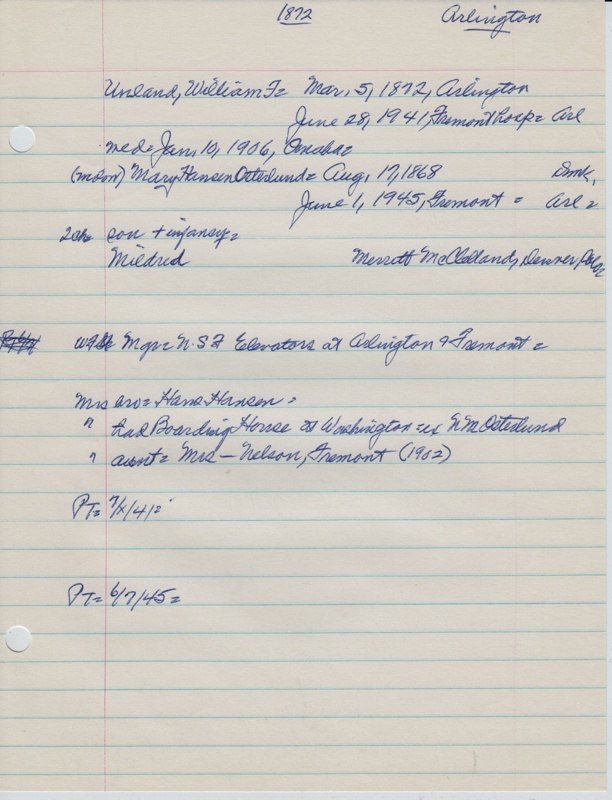 1872 Arlington
Unland, William F= Mar. 5, 1872, Arlington
June 28, 1941, Fremont Hosp= Arl
med= Jan, 10, 1906, Omaha=
Mary Hansen Osterlund= Aug, 17, 1868 Dmk,
June 1, 1945, Fremont = Arl =
2ch son + infancy=
Mildred Merritt McClelland, Denver, Colo
Mgr= N.S& Elevators at Arlington & Fremont =
Mrs bro= Hans Hansen =
" had Boarding House at Washington = N.M Osterlund
" aunt= Mrs — Nelson, Fremont (1902)
PT= 7/ /41=
PT= 6/7/45=